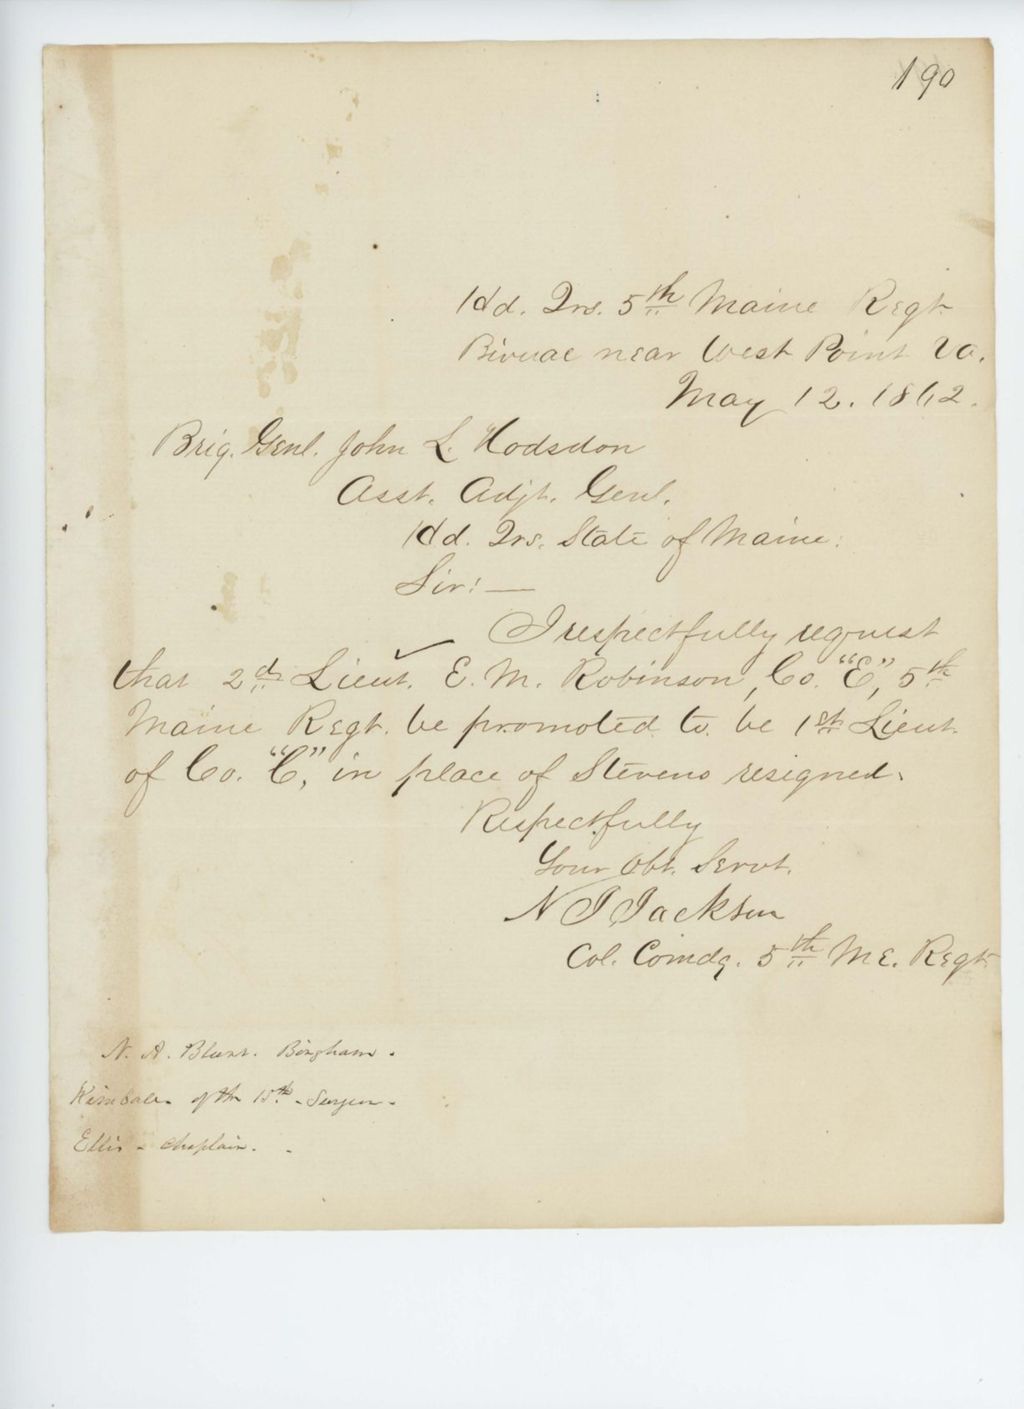 190
Hd. Qrs. 5th Maine Regt.
Bivuac near West Point Va.
May 12. 1862.
Brig. Genl. John L. Hodsdon
Asst. Adjt. Genl.
Hd. Qrs. State of Maine.
Sir:—
I respectfully request
that 2d Lieut. E. M. Robinson, Co. "E", 5th
Maine Regt. be promoted to be 1st Lieut.
of Co. "C", in place of Stevens resigned.
Respectfully
Your Obt. Servt.
N J Jackson
Col. Comdg. 5th Me. Regt.
N. A. Blunt. Bingham.
Kimball of the 15th - Surgeon -
Ellis - Chaplain. -